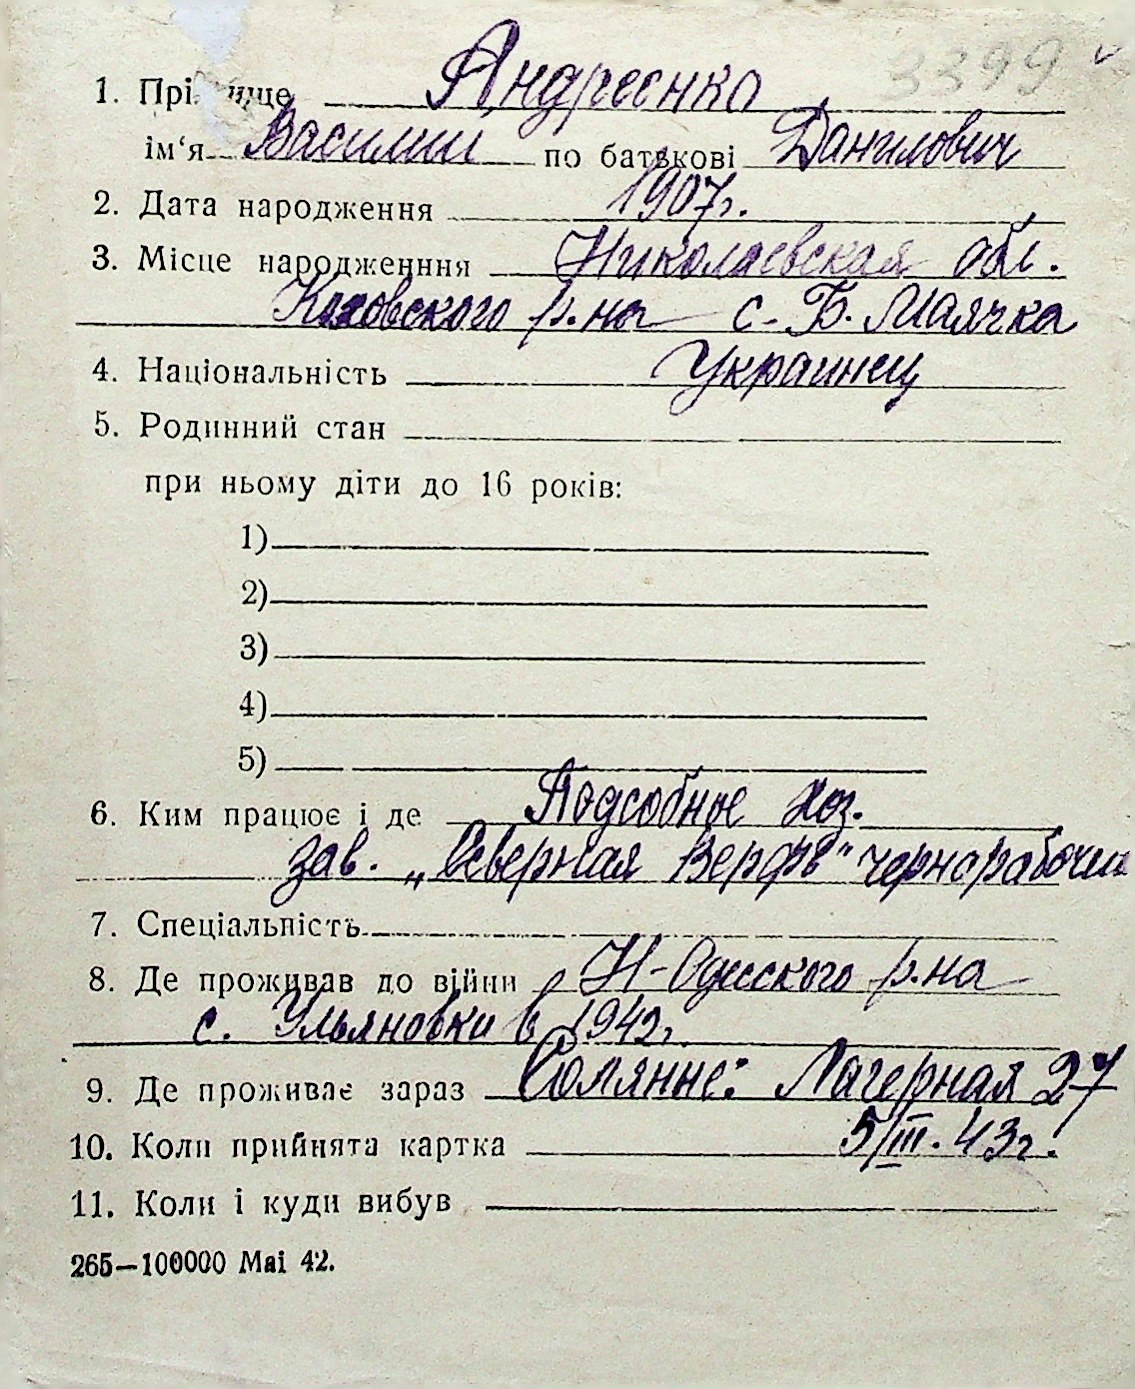 3399
1. Прі нще Андреенко
ім‘я Василий по батькові Данилович
2. Дата народження 1907г.
3. Місце народженння Николаевская обл.
Каховского р.на с. Б. Маячка
4. Національність Украинец
5. Родинний стан
при ньому діти до 16 років:
1)
2)
3)
4)
5)
6. Ким працює і де Подсобное хоз.
зав. „Северная Верфь" чернорабочий
7. Спеціальність
8. Де проживав до війни Н-Одесского р.на
с. Ульяновки в 1942г.
9. Де проживає зараз Солянне: Лагерная 27
10. Коли прийнята картка 5/III. 43г.
11. Коли і куди вибув
265—100000 Mai 42.